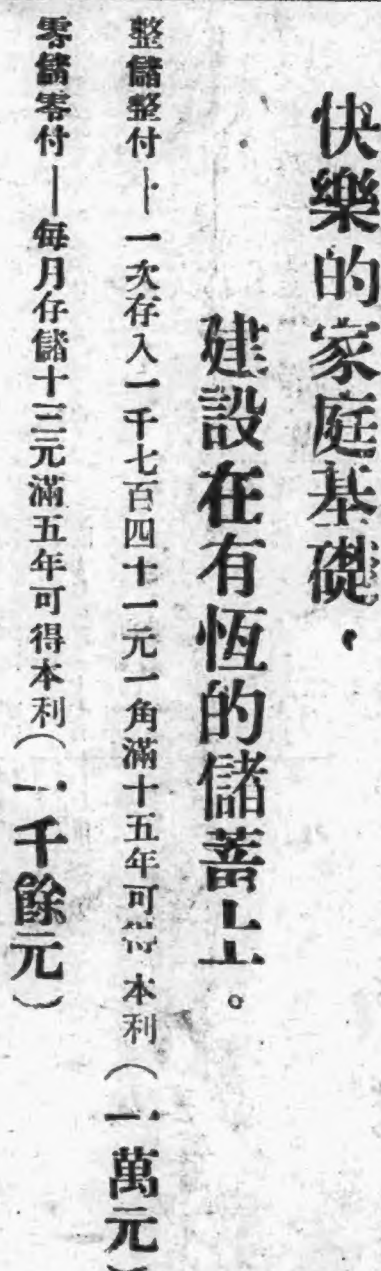 快樂的家庭基礎，
建設在有恆的儲蓄上。
整儲整付—一次存入一千七百四十一元一角滿十五年可得本利（一萬元）
零儲零付—每月存儲十三元滿五年可得本利（一千餘元）